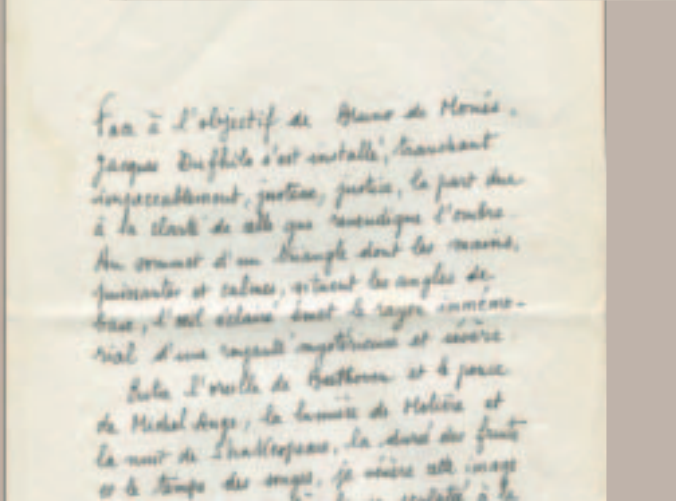 Face à l'objectif de Bruno de Monès,
Jacques Dufilho s'est installé, tranchant
impeccablement, justesse, justice, la part due
à la clarté de celle que revendique l'ombre.
Au sommet d'un triangle dont les mains,
puissantes et calmes, situent les angles de
base, l'œil éclairé émet le rayon immémo-
rial d'une royauté mystérieuse et sévère.
Entre l'oreille de Beethoven et le pouce
de Michel Ange, la lumière de Molière et
la nuit de Shakespeare, la durée des fruits
et le temps des songes, je vénère cette image
à la